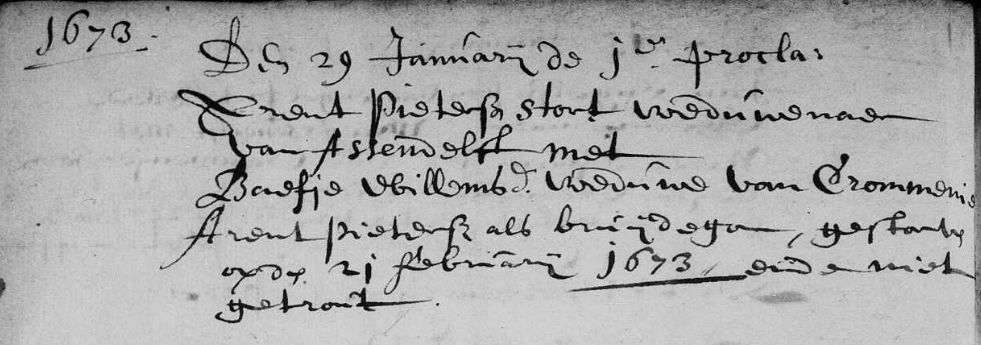 1673.
Den 29 Januarij de 1e procla:
Arent Pietersz stort weduwenaer
van Assendelft met
Baefje Willemsdr. weduwe van Crommenie
Arent Pietersz als bruijdegom, gestorven
opden 21 februarij 1673, ende niet
getrout.